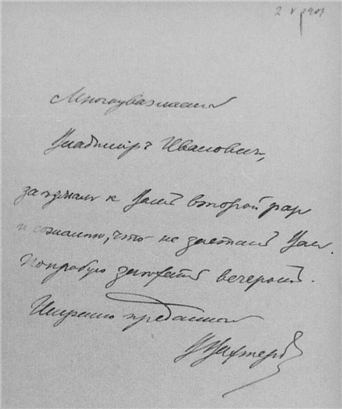 2 V 1901
Многоуважаемый
Владимиръ Ивановичъ,
заѣзжалъ к Вамъ второй раз
и сожалѣю, что не засталъ Вас.
Попробую заѣхать вечеромъ.
Искренно преданный
В Вахтеровъ